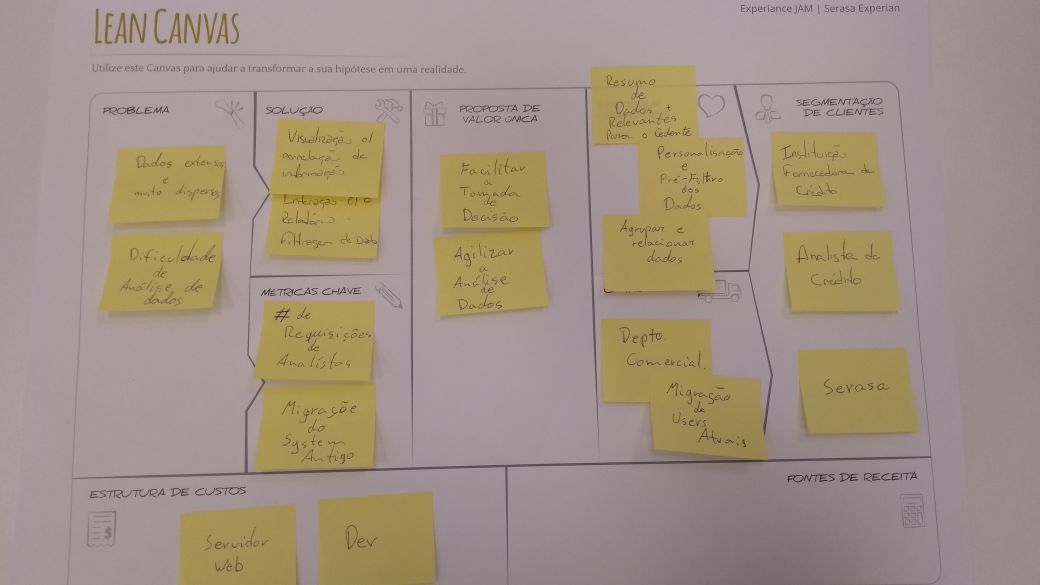 LEAN CANVAS
Experiance JAM | Serasa Experian
Utilize este Canvas para ajudar a transformar a sua hipótese em uma realidade.
PROBLEMA
Dados extensos
e
muito dispersos
Dificuldade
de
Análise de
dados
SOLUÇÃO
Visualização c/
correlação de
informação
Interação c/ o
Relatório -
Filtragem de Data
MÉTRICAS CHAVE
# de
Requisições
de
Analistas
Migraçõe
do
System
Antigo
PROPOSTA DE
VALOR ÚNICA
Facilitar
a
Tomada
de
Decisão
Agilizar
a
Análise
de
Dados
Resumo
de
Dados +
Relevantes
Para o Cedente
Personalização
e
Pré-Filtro
dos
Dados
Agrupar e
relacionar
dados
Depto.
Comercial.
Migração
de
Users
Atuais
SEGMENTAÇÃO
DE CLIENTES
Instituição
Fornecedora de
Crédito
Analista de
Crédito
Serasa
ESTRUTURA DE CUSTOS
Servidor
Web
Dev
FONTES DE RECEITA